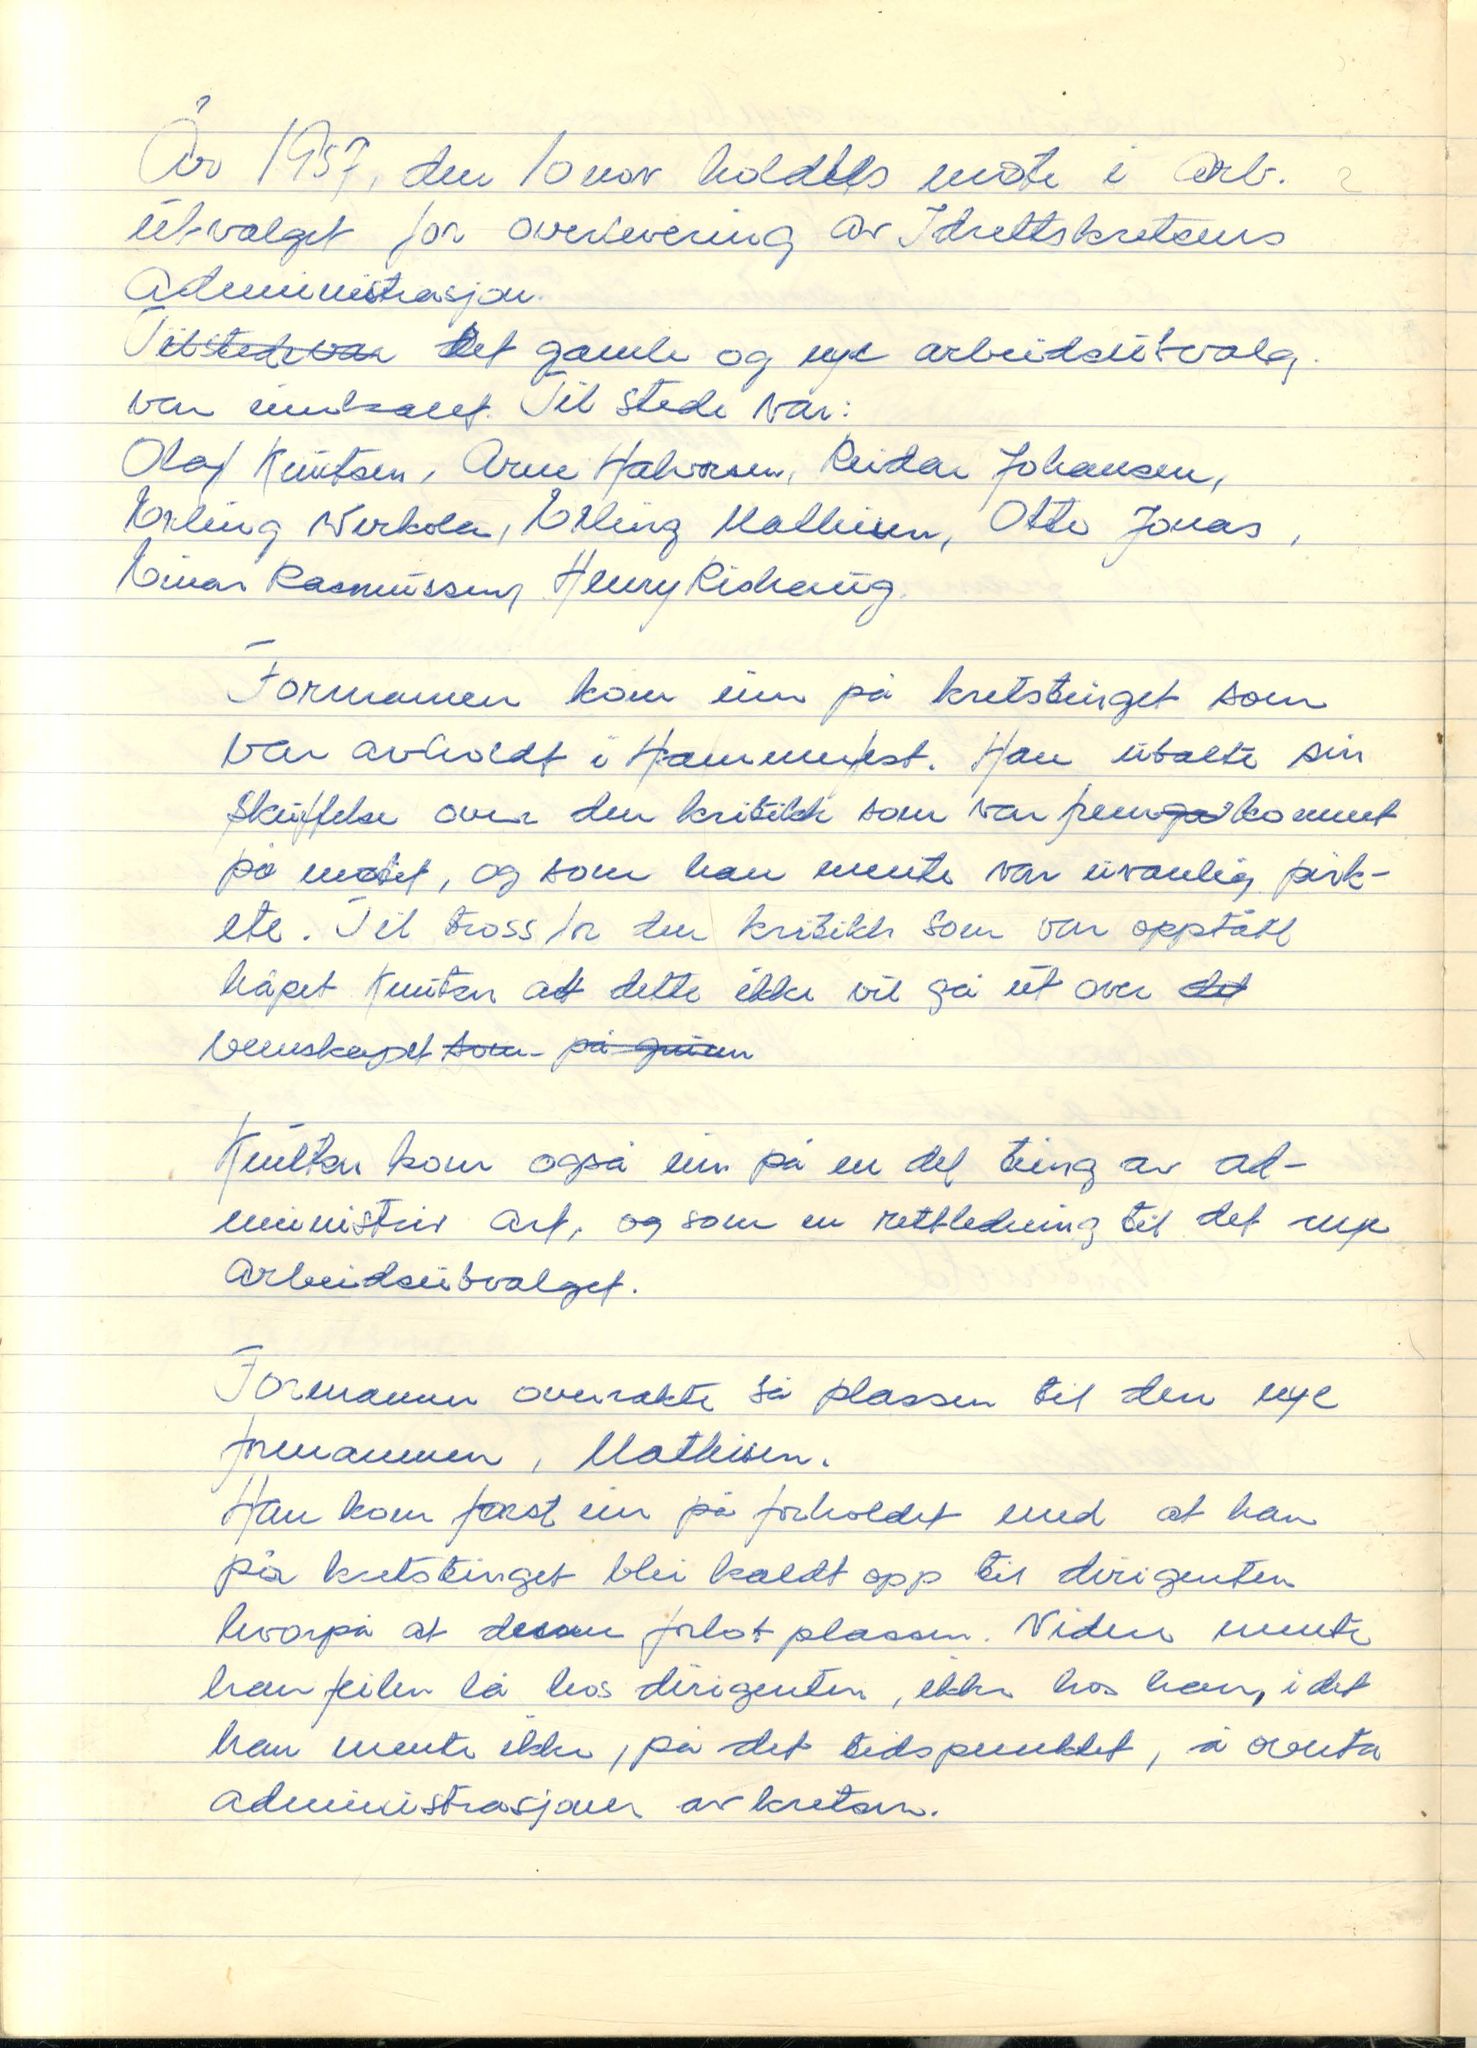 År 1957, den 10 nov holdtes møte i Arb.
utvalget for overlevering av Idrettskretsens
Administrasjon.
Tilstede var Det gamle og nye arbeidsutvalg.
var innkalt. Til stede var:
Olaf Knutsen, Arne Halvorsen, Reidar Johansen,
Erling Werkola, Erling Mathisen, Otto Jonas,
Einar Rasmussen, Henry Rishaug.
Formannen kom inn på kretstinget som
var avholdt i Hammerfest. Han utalte sin
skuffelse over den kritikk som var frem kommet
på møtet, og som han mente var uvanlig pirk-
ete. Til tross for den kritikk som var oppstått
håpet Knutsen at dette ikke vil gå ut over det
vennskapet som på
Knutsen kom også inn på en del ting av ad-
ministriv art, og som en rettledning til det nye
arbeidsutvalget.
Formannen overrakte så plassen til den nye
formannen, Mathisen.
Han kom først inn på forholdet med at han
på kretstinget blei kaldt opp til dirigenten
hvorpå at denne forlot plassen. Videre mente
han feilen lå hos dirigenten, ikke hos han, i det
han mente ikke, på det tidspunktet, å overta
administrasjonen av kretsen.